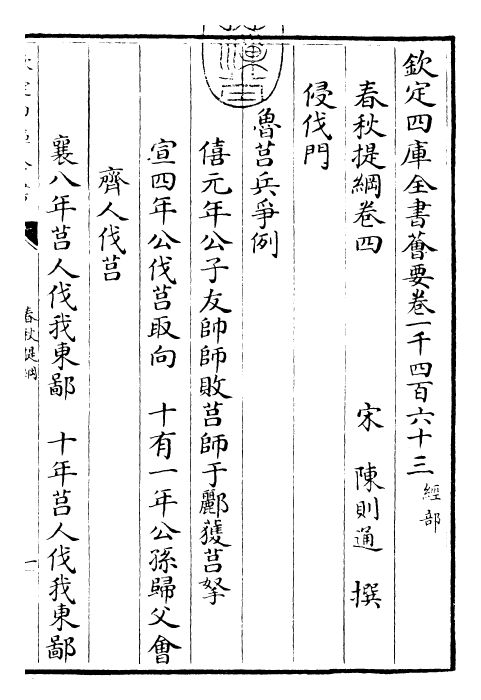 欽定四庫全書薈要卷一千四百六十三 經部
春秋提綱卷四 宋 陳則通 撰
侵伐門
魯莒兵爭例
僖元年公子友帥師敗莒師于酈獲莒挐
宣四年公伐莒取向 十有一年公孫歸父會
齊人伐莒
襄八年莒人伐我東鄙 十年莒人伐我東鄙
春秋提綱
一